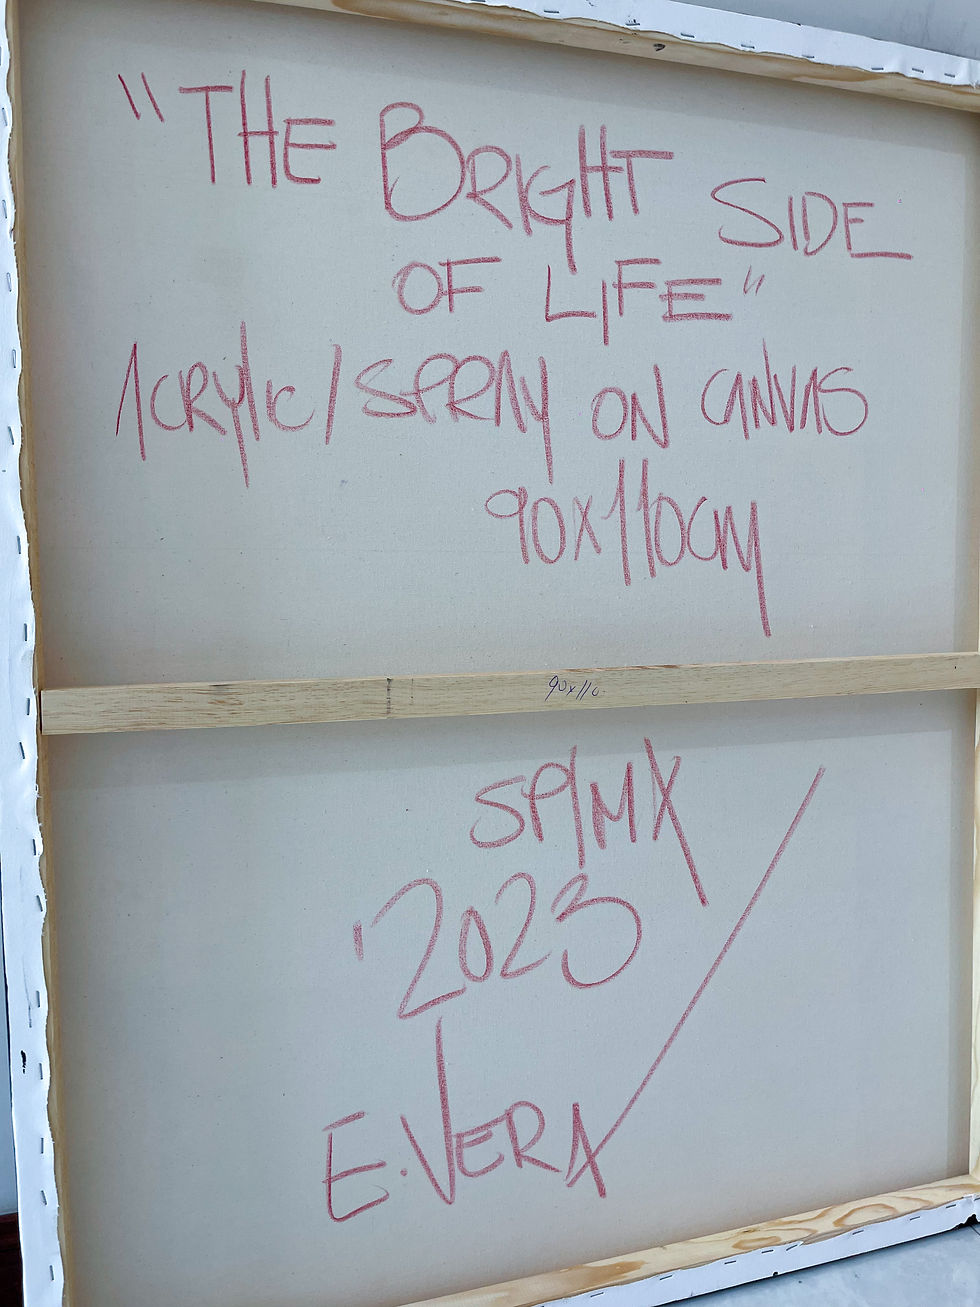 "THE BRIGHT SIDE
OF LIFE"
ACRYLIC/SPRAY ON CANVAS
90X110CM
90x110
SPIMX
'2023
E.VERA